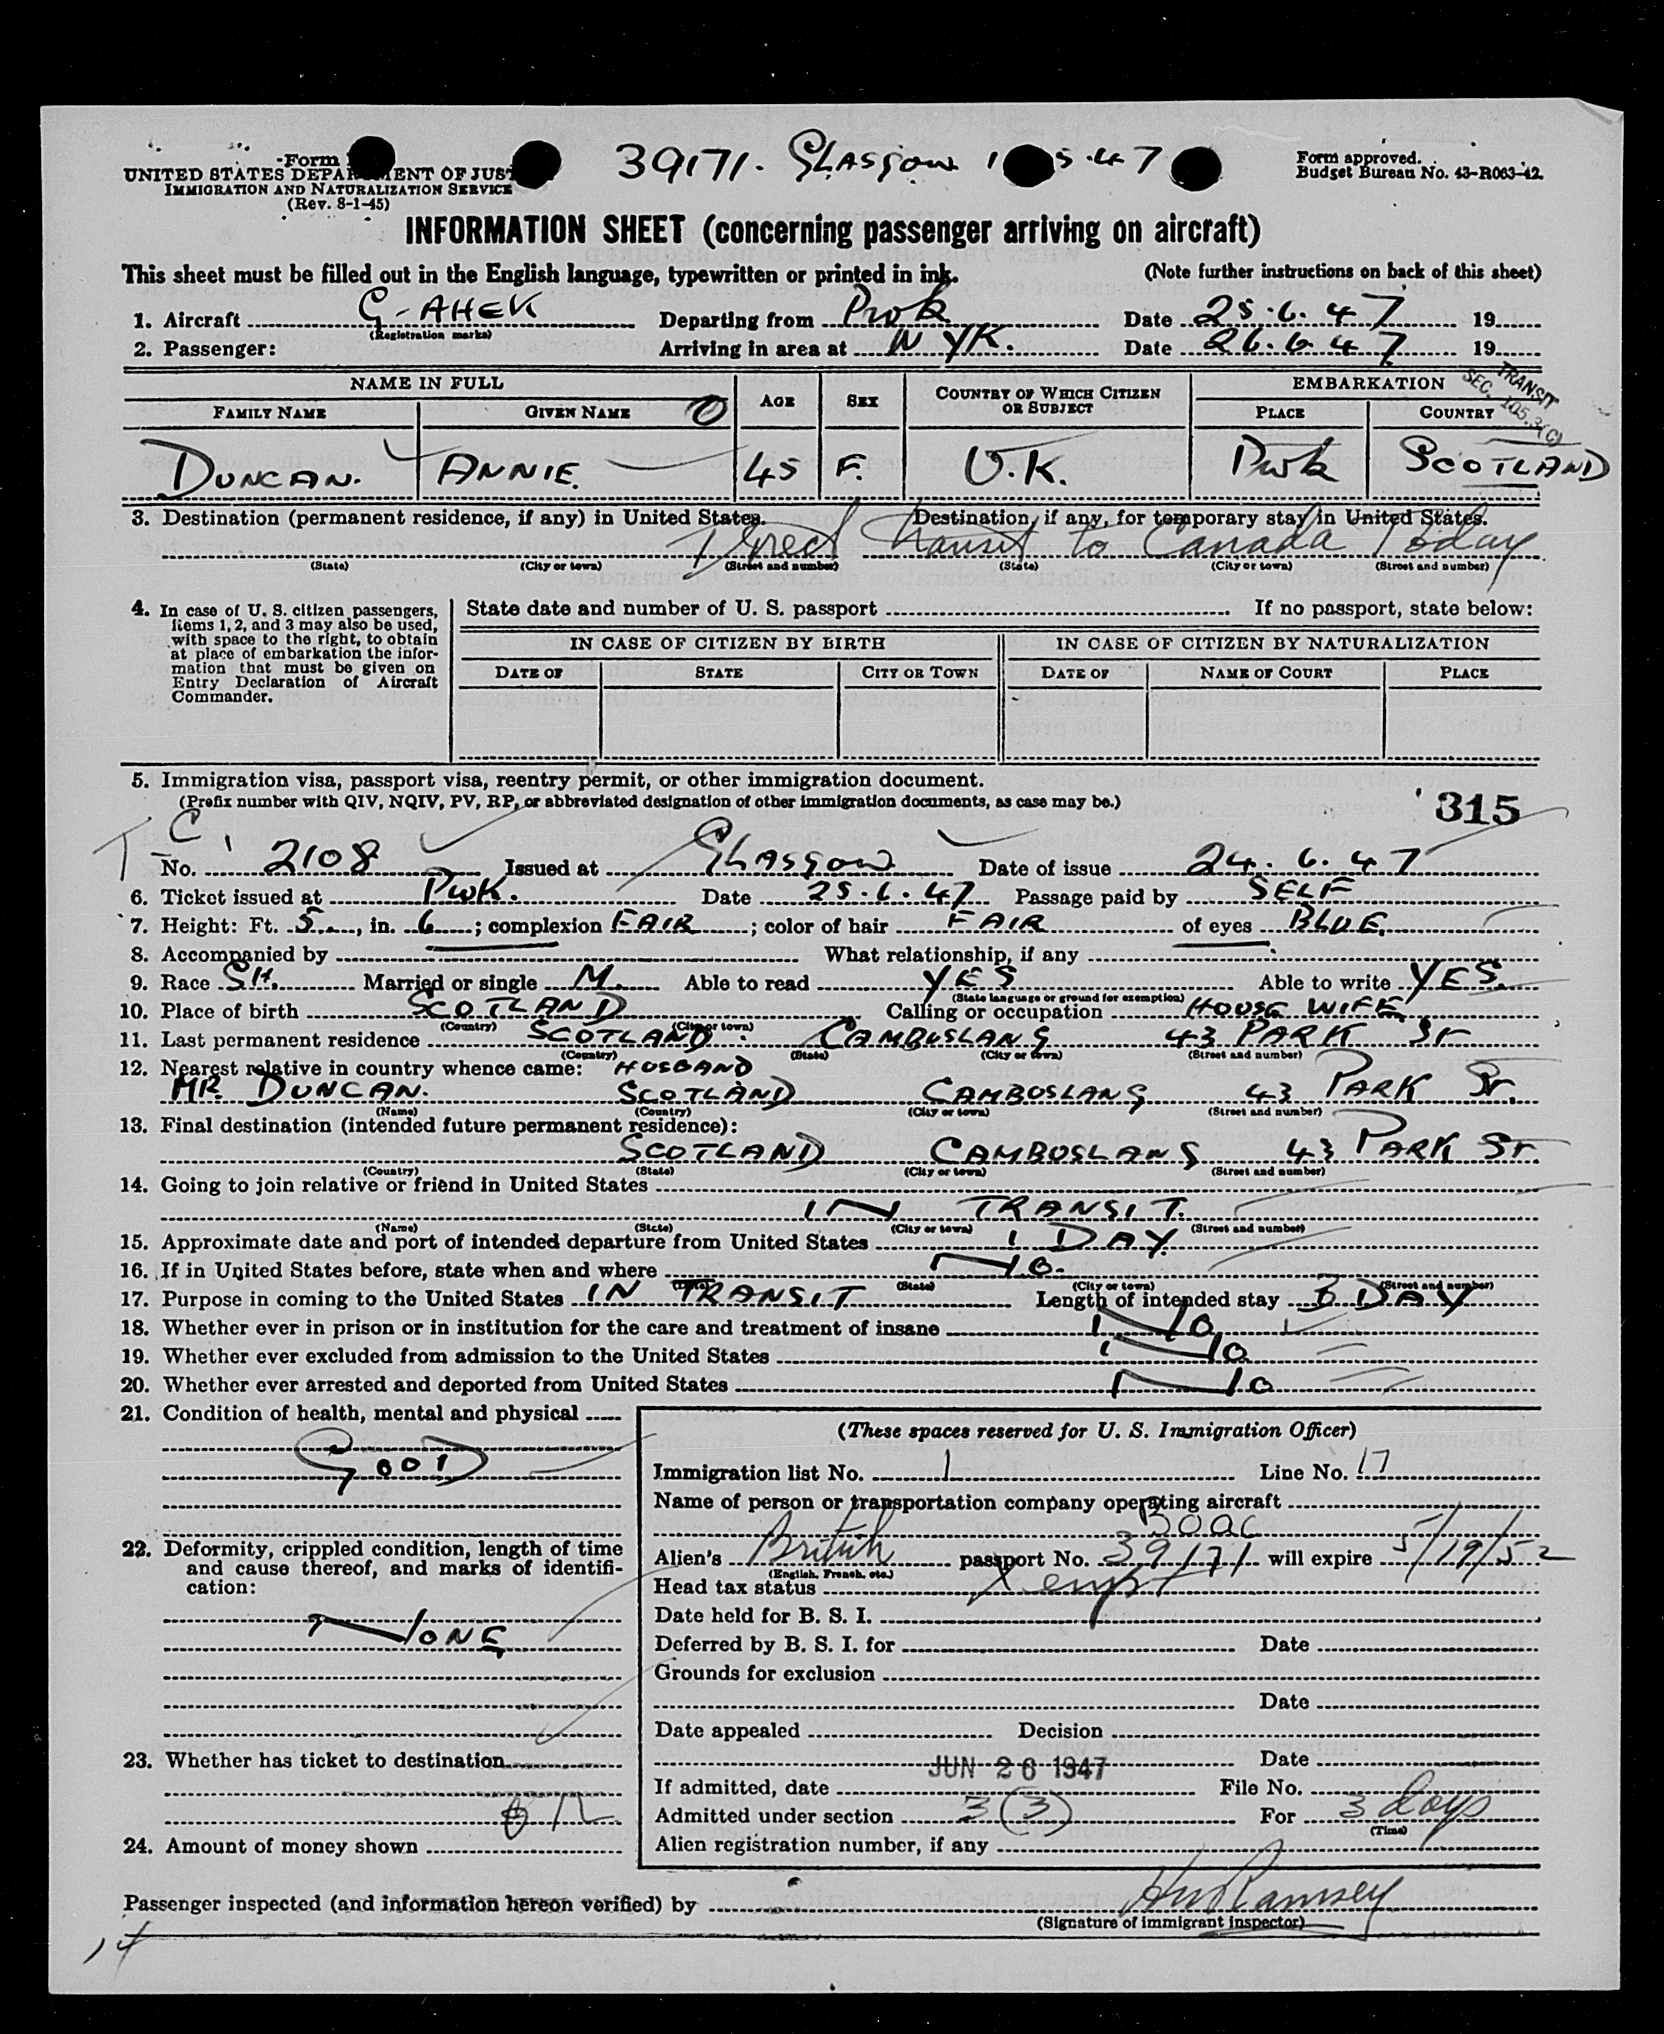 Form
39171. GLASGOW 1 5.47
Form approved.
UNITED STATES DEPARTMENT OF JUST
Budget Bureau No. 43-R063-42.
IMMIGRATION AND NATURALIZATION SERVICE
(Rev. 8-1-45)
INFORMATION SHEET (concerning passenger arriving on aircraft)
This sheet must be filled out in the English language, typewritten or printed in ink. (Note further instructions on back of this sheet)
1. Aircraft G-AHEK Departing from PWK Date 25.6.47 19
(Registration marks)
2. Passenger: Arriving in area at N YK. Date 26.6.47 19
TRANSIT
SEC. 105.3(C)
NAME IN FULL AGE SEX COUNTRY OF WHICH CITIZEN OR SUBJECT EMBARKATION
FAMILY NAME GIVEN NAME PLACE COUNTRY
DUNCAN. ANNIE. 45 F. U.K. PWK SCOTLAND
3. Destination (permanent residence, if any) in United States. Destination, if any, for temporary stay in United States.
Direct transit to Canada Today
(State) (City or town) (Street and number) (State) (City or town) (Street and number)
4. In case of U. S. citizen passengers, items 1, 2, and 3 may also be used, with space to the right, to obtain at place of embarkation the information that must be given on Entry Declaration of Aircraft Commander.
State date and number of U. S. passport If no passport, state below:
IN CASE OF CITIZEN BY BIRTH IN CASE OF CITIZEN BY NATURALIZATION
DATE OF STATE CITY OR TOWN DATE OF NAME OF COURT PLACE
5. Immigration visa, passport visa, reentry permit, or other immigration document.
(Prefix number with QIV, NQIV, PV, RP, or abbreviated designation of other immigration documents, as case may be.)
315
T C
No. 2108 Issued at GLASGOW Date of issue 24.6.47
6. Ticket issued at PWK. Date 25.6.47 Passage paid by SELF
7. Height: Ft. 5, in. 6; complexion FAIR; color of hair FAIR of eyes BLUE.
8. Accompanied by What relationship, if any
9. Race SH. Married or single M. Able to read YES Able to write YES.
(State language or ground for exemption)
10. Place of birth SCOTLAND Calling or occupation HOUSE WIFE
(Country) (City or town)
11. Last permanent residence SCOTLAND. CAMBUSLANG 43 PARK ST
(Country) (State) (City or town) (Street and number)
12. Nearest relative in country whence came: HUSBAND
MR. DUNCAN. SCOTLAND CAMBUSLANG 43 PARK ST.
(Name) (Country) (City or town) (Street and number)
13. Final destination (intended future permanent residence):
SCOTLAND CAMBUSLANG 43 PARK ST.
(Country) (State) (City or town) (Street and number)
14. Going to join relative or friend in United States
IN TRANSIT.
(Name) (State) (City or town) (Street and number)
15. Approximate date and port of intended departure from United States 1 DAY
16. If in United States before, state when and where No.
(Date) (State) (City or town) (Street and number)
17. Purpose in coming to the United States IN TRANSIT Length of intended stay DAY
18. Whether ever in prison or in institution for the care and treatment of insane No
19. Whether ever excluded from admission to the United States No
20. Whether ever arrested and deported from United States No
21. Condition of health, mental and physical
GOOD
22. Deformity, crippled condition, length of time and cause thereof, and marks of identification:
NONE
23. Whether has ticket to destination
24. Amount of money shown
(These spaces reserved for U. S. Immigration Officer)
Immigration list No. 1 Line No. 17
Name of person or transportation company operating aircraft
BOAC
Alien's British passport No. 39171 will expire 5/19/52
(English, French, etc.)
Head tax status
Date held for B. S. I.
Deferred by B. S. I. for Date
Grounds for exclusion
Date
Date appealed Decision
JUN 26 1947 Date
If admitted, date File No.
Admitted under section 3 (3) For 3 days
(Time)
Alien registration number, if any
Passenger inspected (and information hereon verified) by Ramsey
(Signature of immigrant inspector)